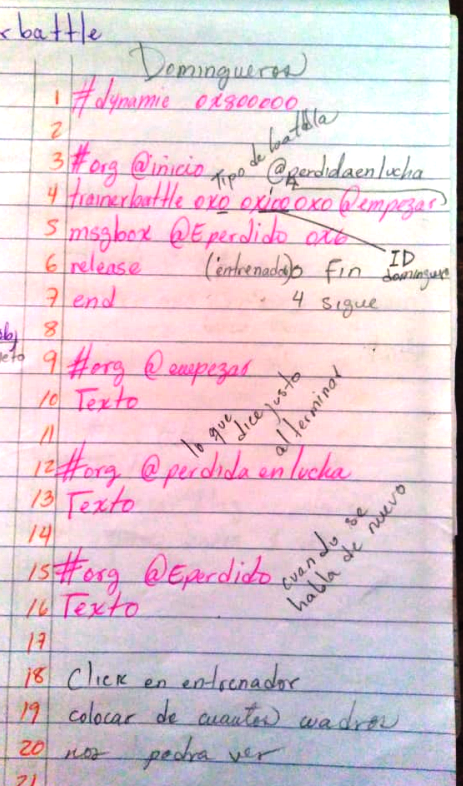 battle
Domingueros
1 #dynamic 0x800000
2
3 #org @inicio Tipo de batalla @perdidaenlucha
4 trainerbattle 0x0 0x1c0 0x0 @empezar
5 msgbox @Eperdido 0x6 ID
6 release (entrenador) 0 Fin dominguero
7 end 4 sigue
8
9 #org @empezar
10 Texto
11 lo que dice justo al terminar
12 #org @perdida en lucha
13 Texto
14
15 #org @Eperdido cuando se habla de nuevo
16 Texto
17
18 Click en entrenador
19 colocar de cuantos cuadros
20 nos podra ver
21